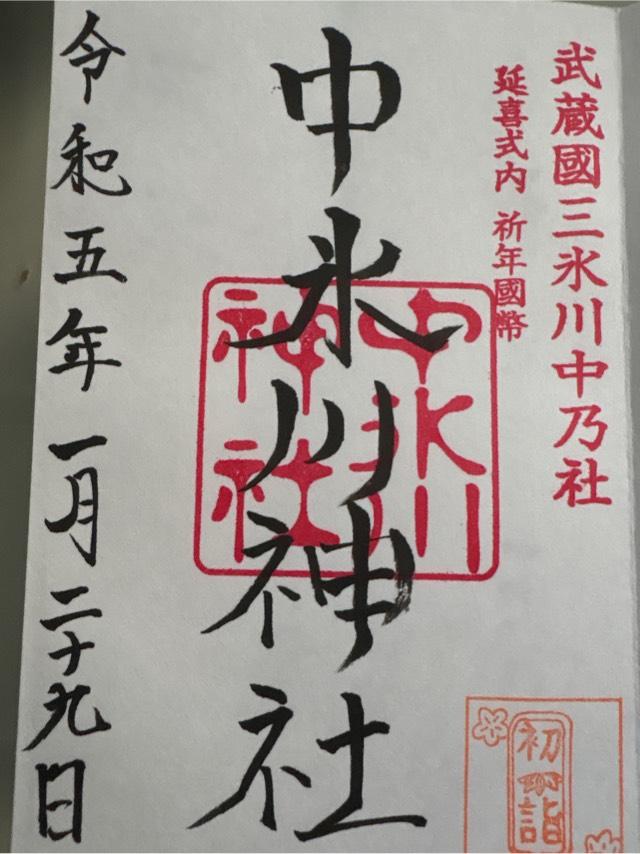 武蔵國三氷川中乃社
延喜式内 祈年國幣
中氷川神社
中氷川
神社
令和五年一月二十九日
初詣